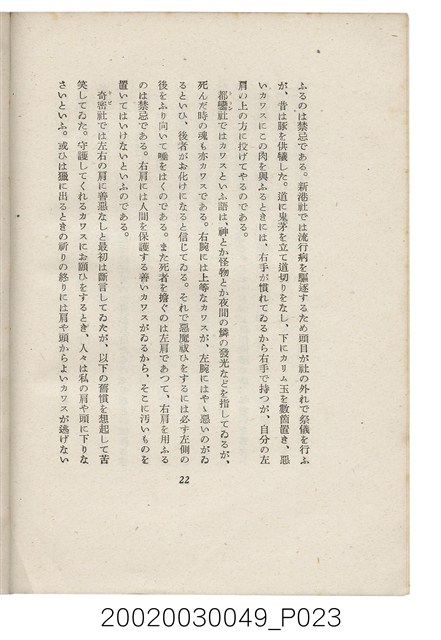 ふるのは禁忌である。新港社では流行病を驅逐するため頭目が社の外れで祭儀を行ふ
が、昔は豚を供犧した。道に鬼茅を立て道切りをなし、下にカリム玉を數箇置き、惡
いカワスにこの肉を與ふるときには、右手が慣れてゐるから右手で持つが、自分の左
肩の上の方に投げてやるのである。
都巒社ではカワスといふ語は、神とか怪物とか夜間の燐の發光などを指してゐるが、
死んだ時の魂も亦カワスである。右腕には上等なカワスが、左腕にはやゝ惡いのがゐ
るといひ、後者がお化けになると信じてゐる。それで惡魔祓ひをするには必ず左側の
後をふり向いて唾をはくのである。また死者を擔ぐのは左肩であつて、右肩を用ふる
のは禁忌である。右肩には人間を保護する善いカワスがゐるから、そこに汚いものを
置いてはいけないといふのである。
奇密社では左右の肩に善惡なしと最初は斷言してゐたが、以下の舊慣を想起して苦
笑してゐた。守護してくれるカワスにお願ひをするとき、人々は私の肩や頭に下りな
さいといふ。或ひは獵に出るときの祈りの終りには肩や頭からよいカワスが逃げない
22
20020030049_P023